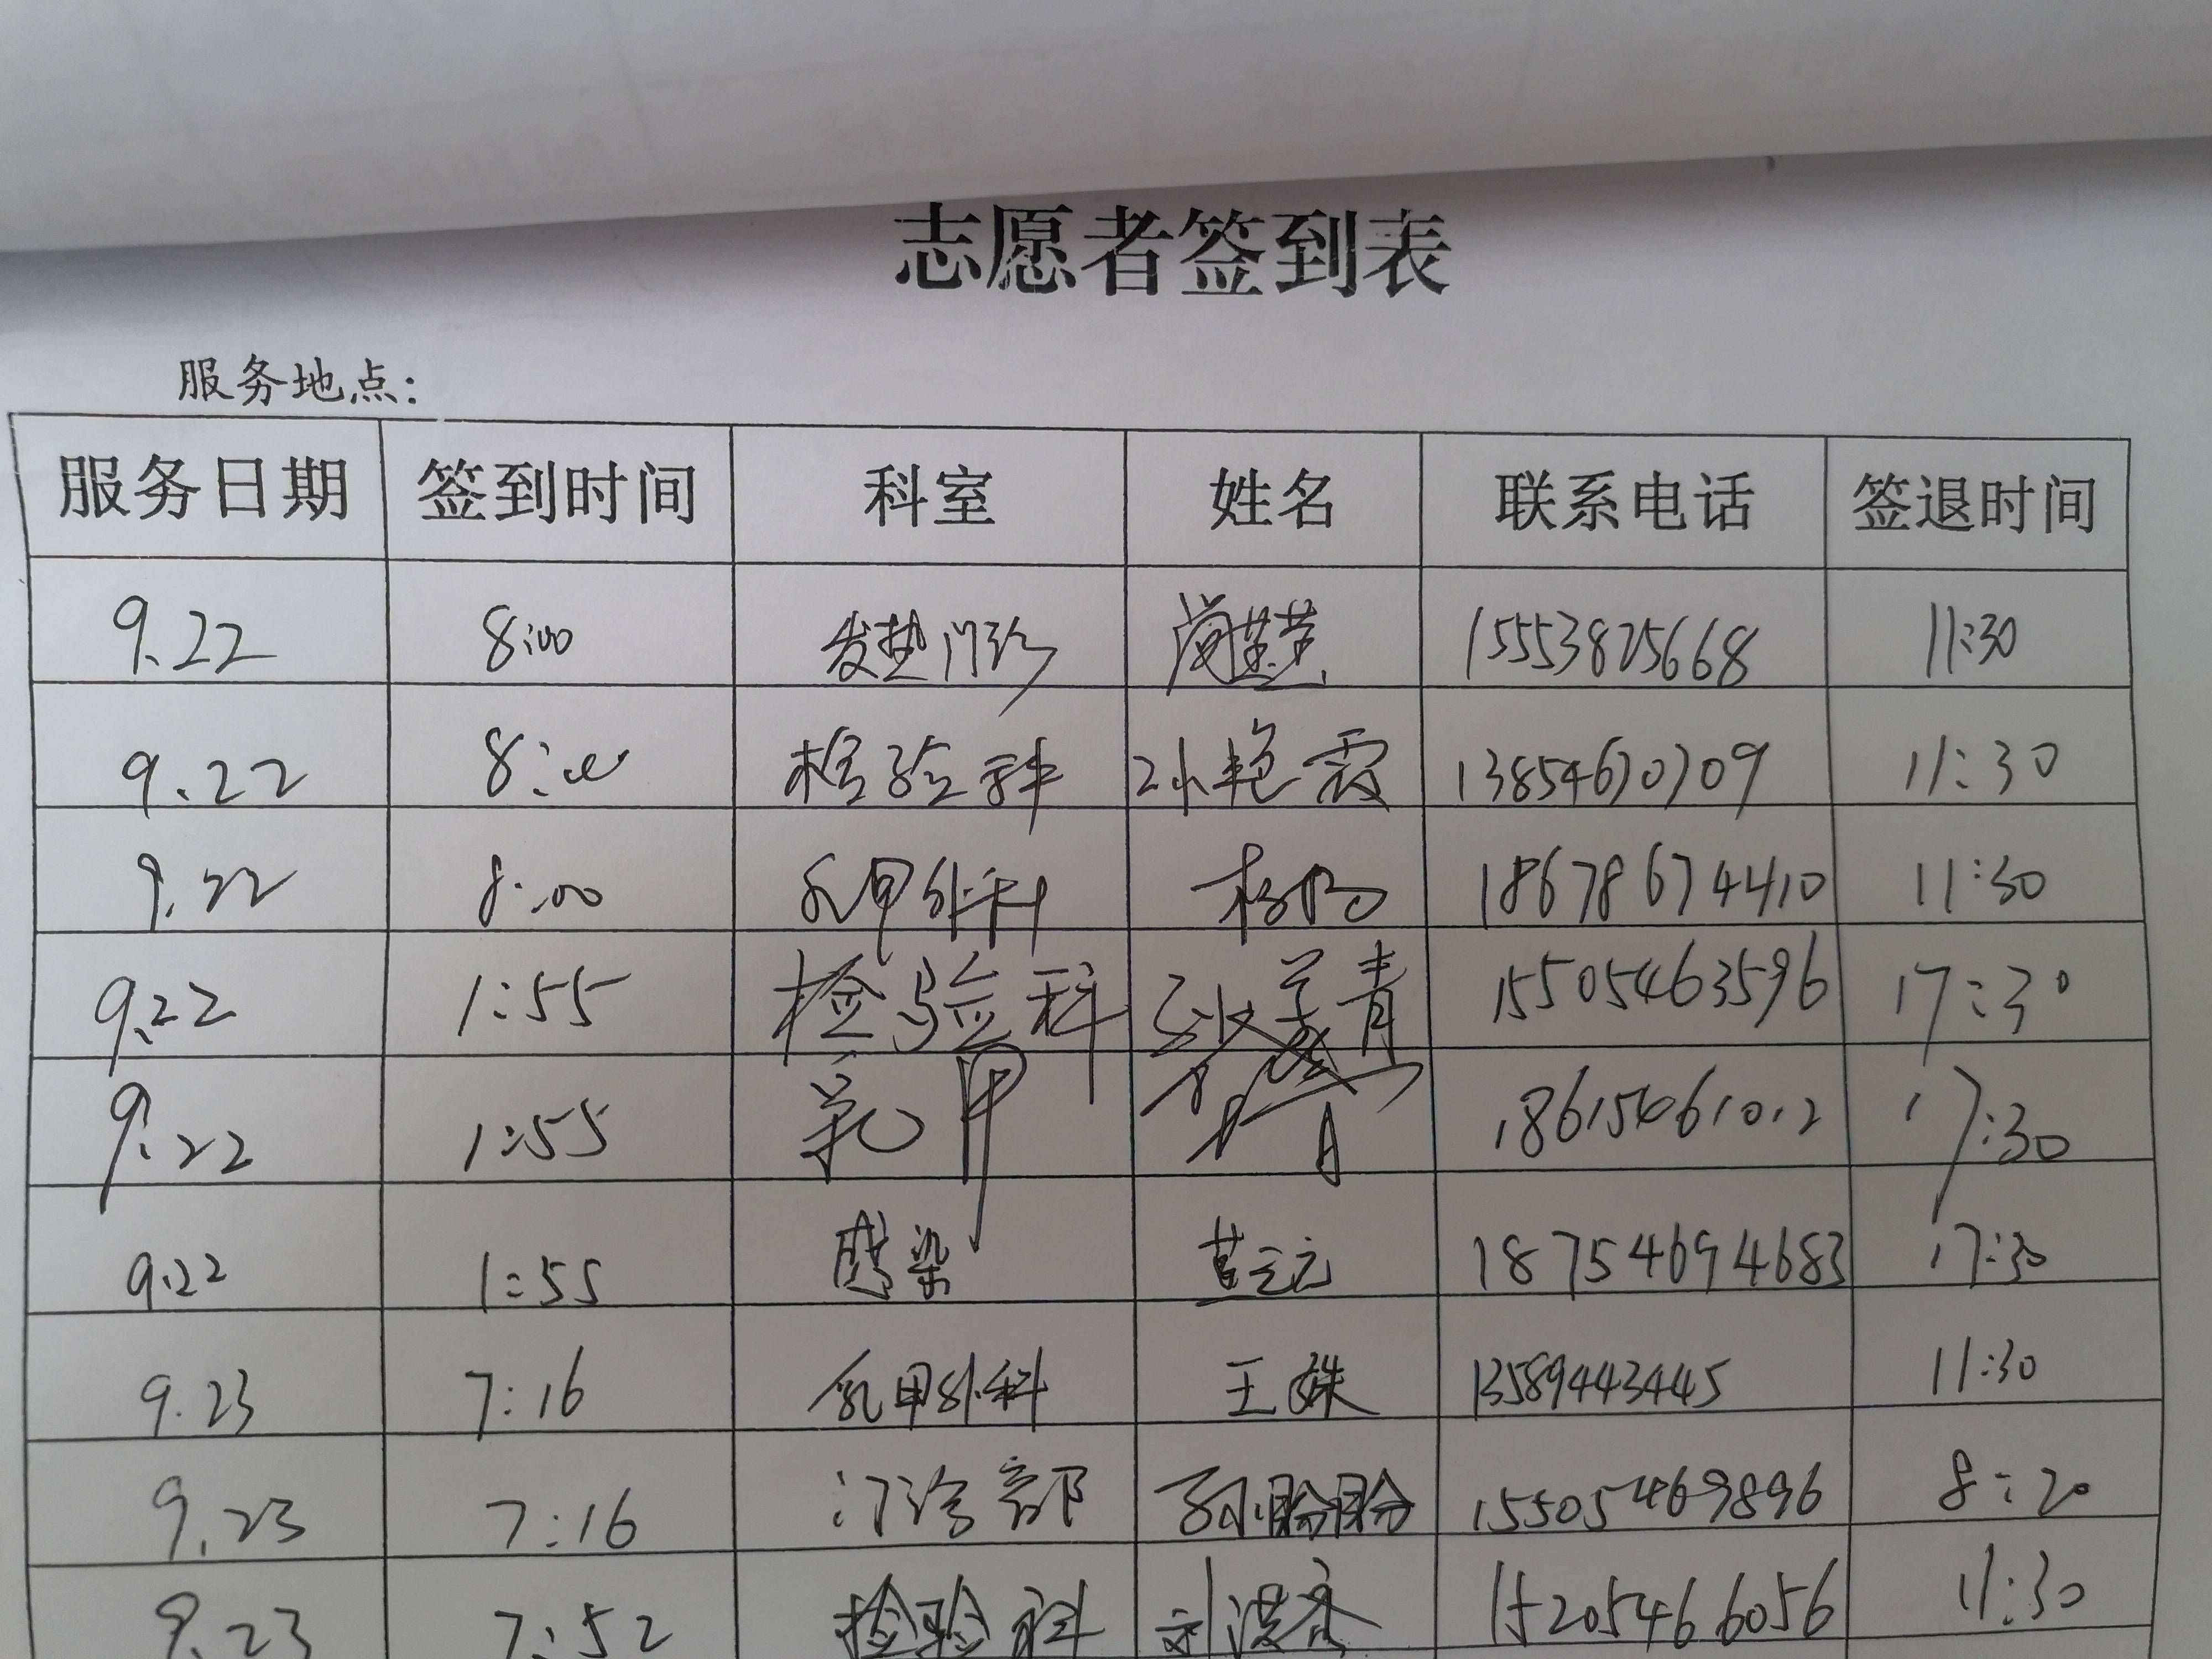 志愿者签到表
服务地点:
服务日期 签到时间 科室 姓名 联系电话 签退时间
9.22 8:00 发热门诊 15553825668 11:30
9.22 8:00 检验科 孙艳霞 13854670709 11:30
9.22 8:00 乳甲外科 杨阳 18678674410 11:30
9.22 1:55 检验科 青 15505463596 17:30
9.22 1:55 乳甲 18615461012 17:30
9.22 1:55 感染 18754694683 17:30
9.23 7:16 乳甲外科 王姝 13589443445 11:30
9.23 7:16 门诊部 孙盼盼 15505469896 8:20
9.23 7:52 检验科 刘洪 15205466056 11:30